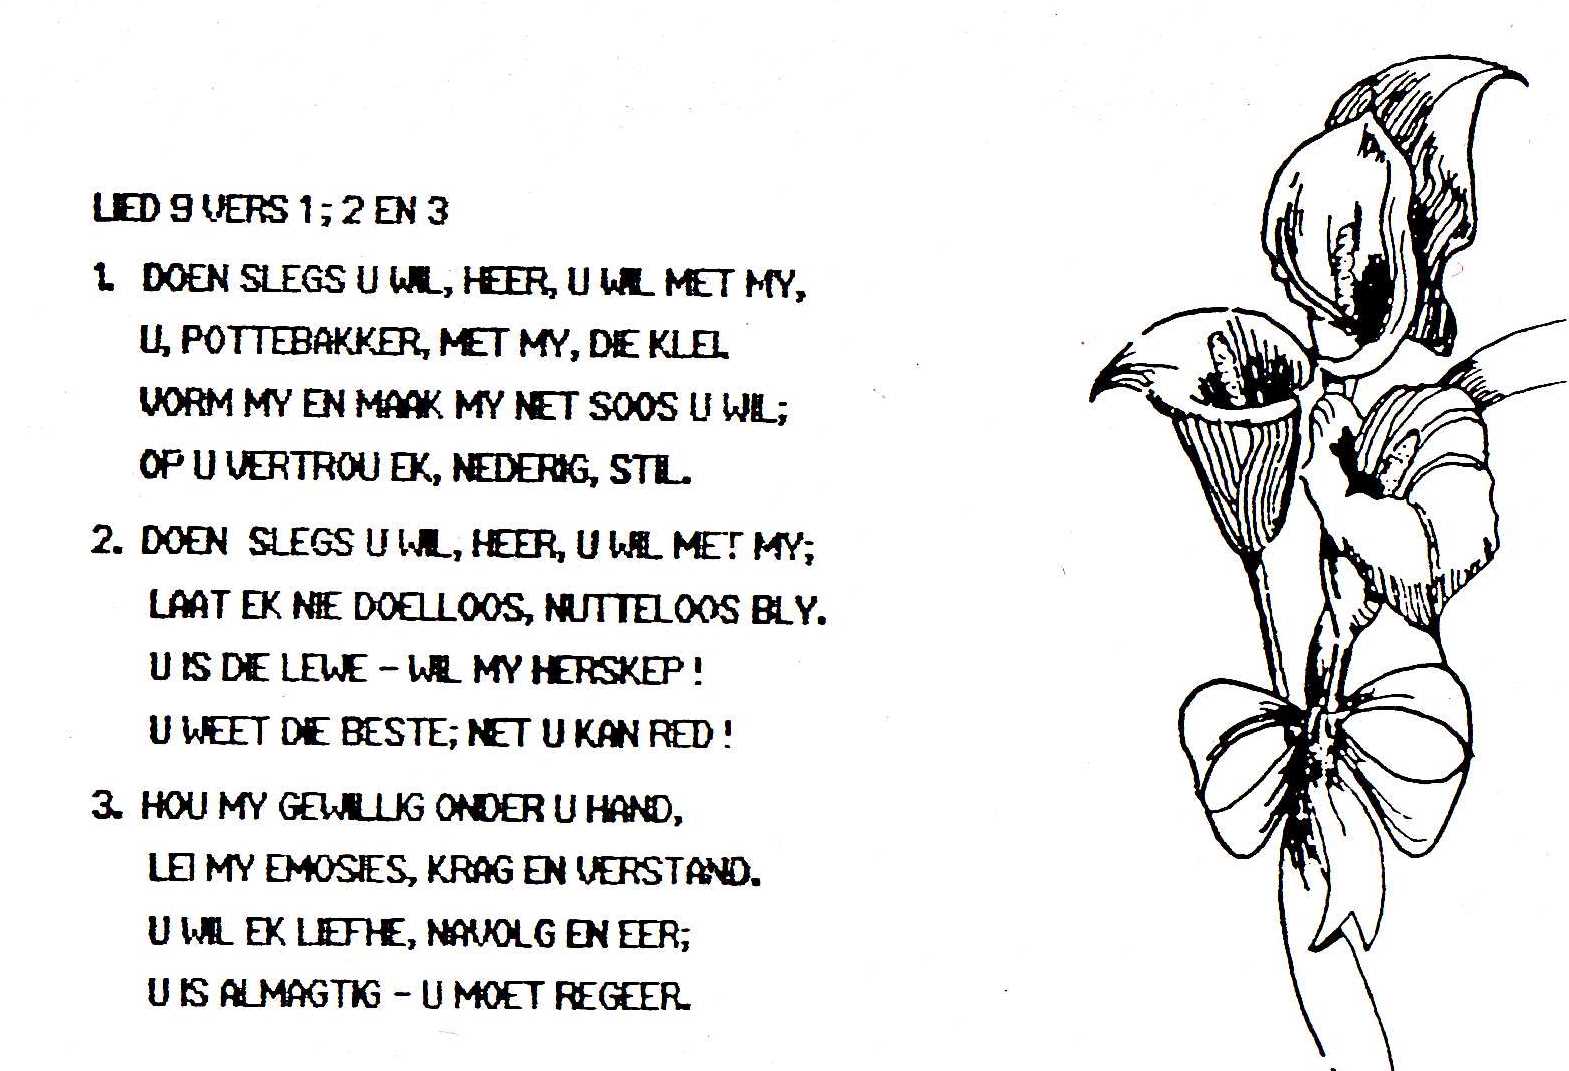 LIED 9 VERS 1; 2 EN 3
1. DOEN SLEGS U WIL, HEER, U WIL MET MY,
U, POTTEBAKKER, MET MY, DIE KLEI.
VORM MY EN MAAK MY NET SOOS U WIL;
OP U VERTROU EK, NEDERIG, STIL.
2. DOEN SLEGS U WIL, HEER, U WIL MET MY;
LAAT EK NIE DOELLOOS, NUTTELOOS BLY.
U IS DIE LEWE - WIL MY HERSKEP!
U WEET DIE BESTE; NET U KAN RED!
3. HOU MY GEWILLIG ONDER U HAND,
LEI MY EMOSIES, KRAG EN VERSTAND.
U WIL EK LIEFHE, NAVOLG EN EER;
U IS ALMAGTIG - U MOET REGEER.